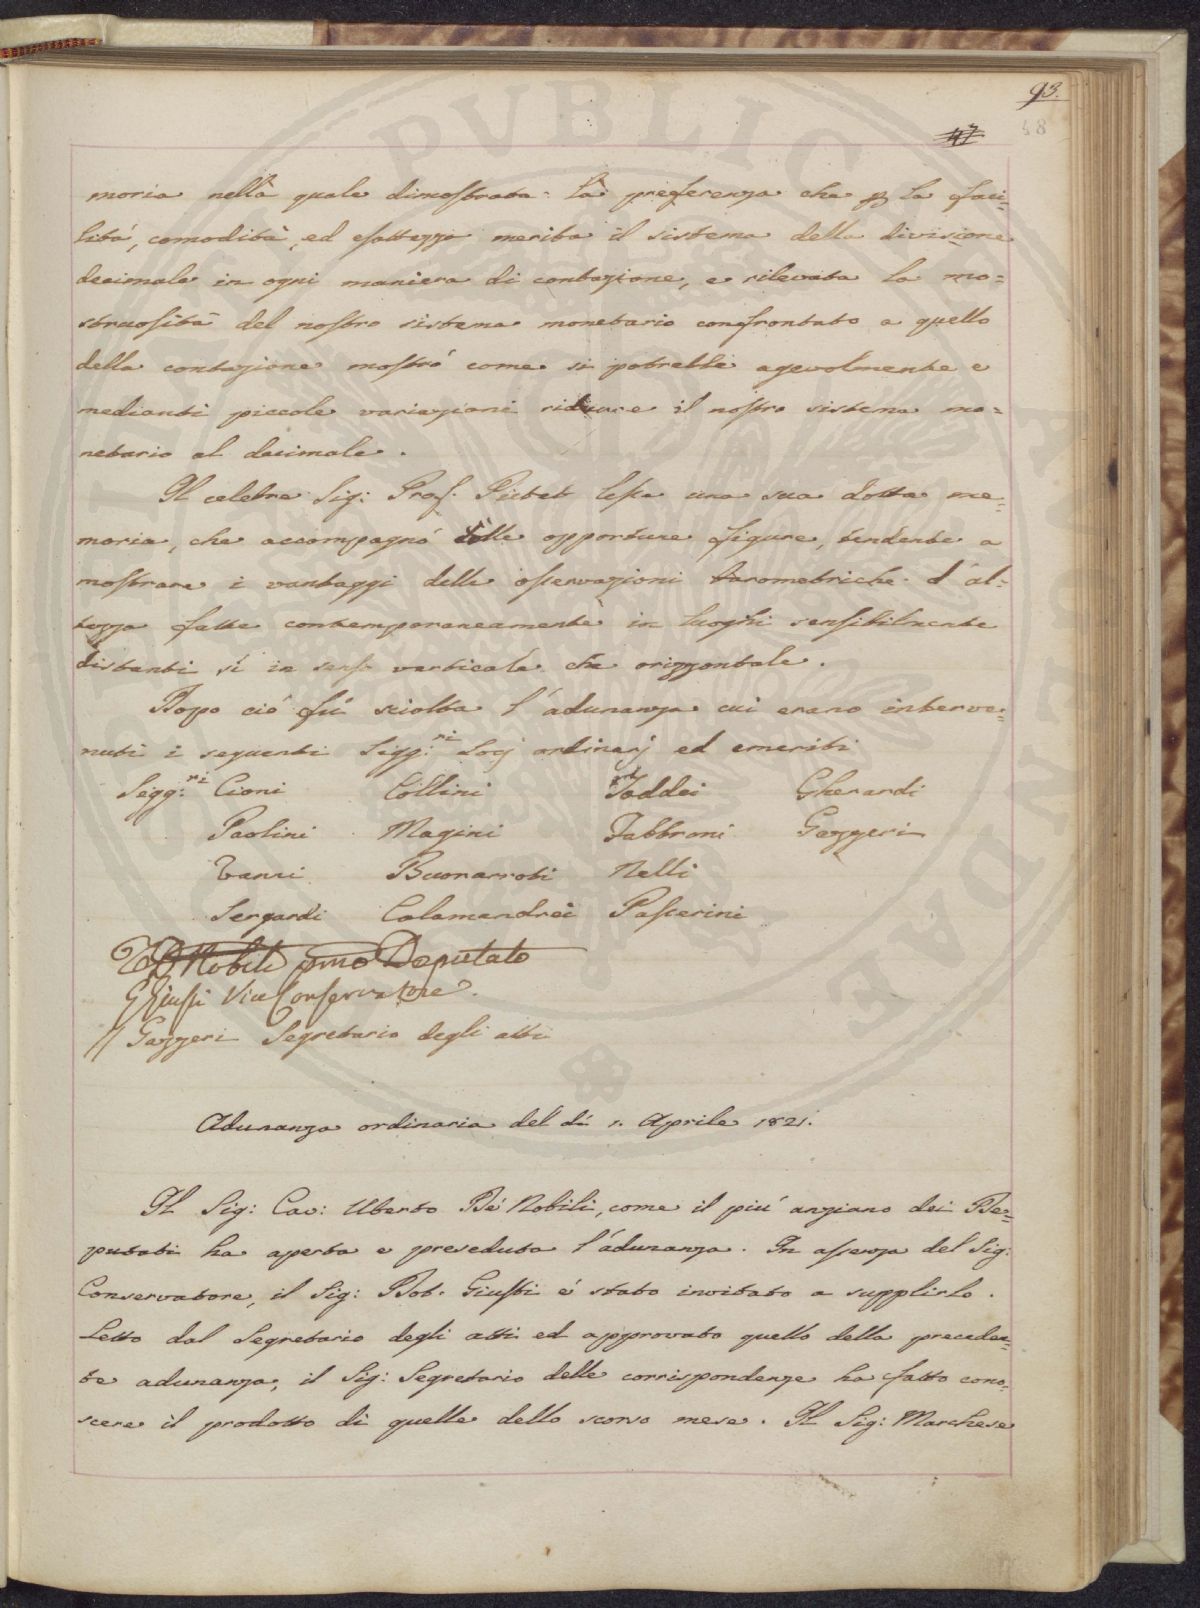 93.
47
48
moria nella quale dimostrata la preferenza che p la faci=
lità, comodità, ed esattezza merita il sistema della divisione
decimale in ogni maniera di contazione, e rilevata la mo=
struosità del nostro sistema monetario confrontato a quello
della contazione mostrò come si potrebbe agevolmente e
medianti piccole variazioni ridurre il nostro sistema mo=
netario al decimale.
Il celebre Sig: Prof. Pictet lesse una sua dotta me=
moria, che accompagnò colle opportune figure, tendente a
mostrare i vantaggi delle osservazioni barometriche d'al=
tezza fatte contemporaneamente in luoghi sensibilmente
distanti sì in senso verticale che orizzontale.
Dopo ciò fù sciolta l'adunanza cui erano interve=
nuti i seguenti Sigg:ri Socj ordinarj ed emeriti
Segg:ri Cioni Collini Taddei Gherardi
Paolini Magini Fabbroni Gazzeri
Vanni Buonarroti Nelli
Sergardi Calamandrei Passerini
Nobili pmo Deputato
G Giusti Vice Conservatore.
Gazzeri Segretario degli atti
Adunanza ordinaria del dì 1. Aprile 1821.
Il Sig: Cav: Uberto De Nobili, come il più anziano dei De=
putati ha aperta e preseduta l'adunanza. In assenza del Sig:
Conservatore, il Sig: Dot. Giusti è stato invitato a supplirlo.
Letto dal Segretario degli atti ed approvato quello della preceden=
te adunanza, il Sig: Segretario delle corrispondenze ha fatto cono=
scere il prodotto di quelle dello scorso mese. Il Sig: Marchese